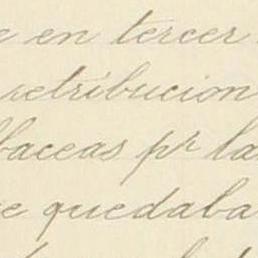 e en tercer
retribucion
baceas pr la
e quedaba